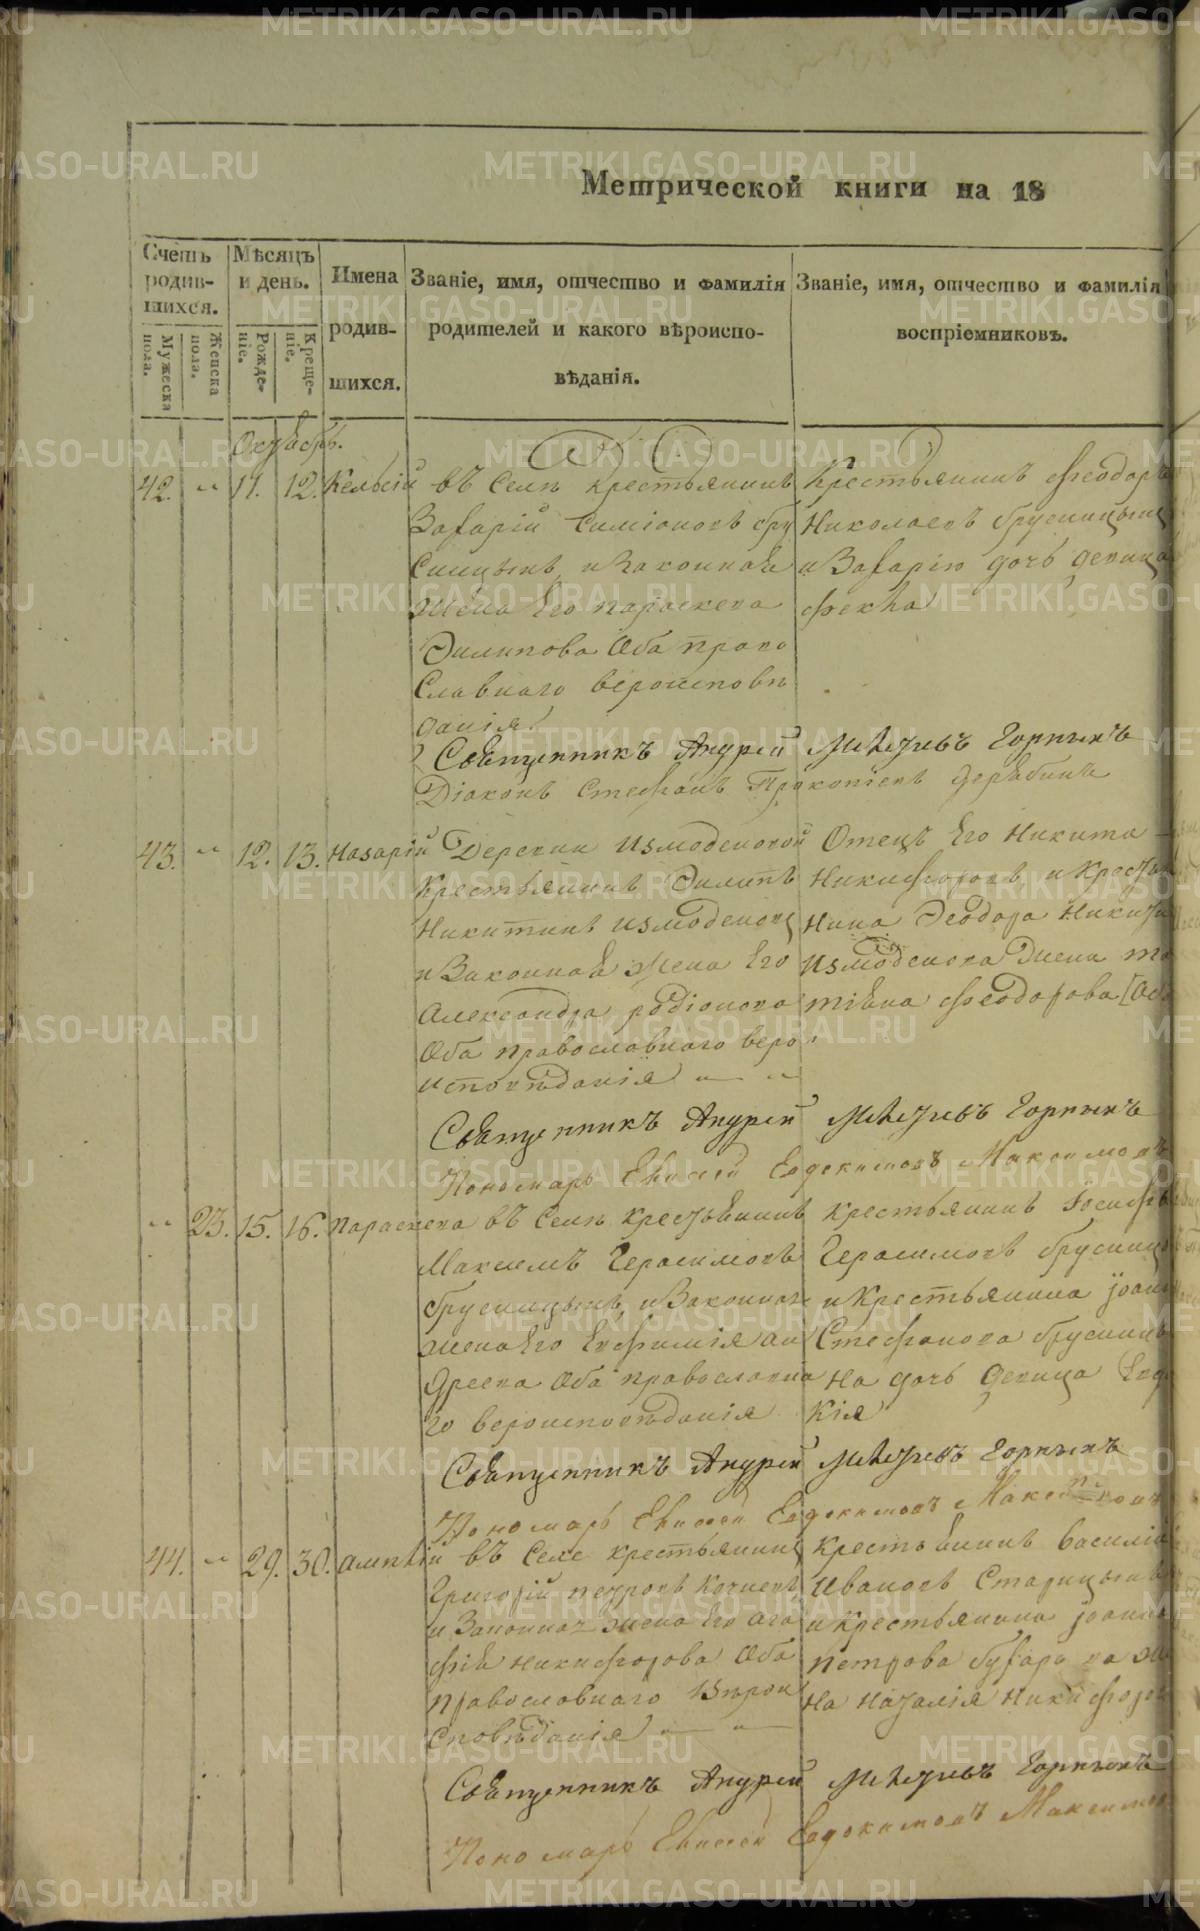 Метрической книги на 18
Счетъ родившихся.
Мѣсяцъ и день.
Имена родившихся.
Званіе, имя, отчество и фамилія родителей и какого вѣроисповѣданія.
Званіе, имя, отчество и фамилія воспріемниковъ.
Мужеска пола.
Женска пола.
Рожденіе.
Крещеніе.
Октябрь.
42. " 11. 12. Кельсій въ Селѣ крестьянинъ
Захарій Симіоновъ бру
Сницынъ, и Законная
жена Его параскева
Филипова Оба право
Славнаго вероисповѣ
данія.
Крестьянинъ Феодоръ
Николаевъ брусницын
и Захарію дочь девица
Фекла
Священникъ Андрей Горныхъ
Діаконъ Стефанъ Прокопіевъ Дерябинъ
43. " 12. 13. Назарій Деревни Измоденовой
крестьянинъ Филипъ
Никитинъ измоденовъ
и Законная жена Его
Александра родіонова
Оба православнаго веро
исповѣданія " "
Отецъ Его Никита
Никифоровъ, и Крестья
нина Феодора Никити
Измоденова жена
Феодорова
Священникъ Андрей Горныхъ
Пономарь Евдокимовъ Максимовъ
" 23. 15. 16. параскева въ Селѣ крестьянинъ
Максимъ Герасимовъ
брусницынъ, и Законная
жена Его Евфимія ан
дреева Оба православна
го вероисповѣданія
крестьянинъ Іосифъ
Герасимовъ брусниц
и Крестьянина іоанн
Стефанова брусницы
на дочь девица Евдо
кія
Священникъ Андрей Горныхъ
Пономарь Евдокимовъ
44. " 29. 30. въ Селе крестьянинъ
Григорій петровъ Кочневъ,
и Законная жена Его Ага
фія никифорова Оба
православнаго Вѣрои
Сповѣданія " "
крестьянинъ Василій
Ивановъ Старицынъ
и крестьянина іоанна
петрова
на Наталія Никифоро
Священникъ Андрей Горныхъ
Пономарь Евдокимовъ Максимов
METRIKI.GASO-URAL.RU